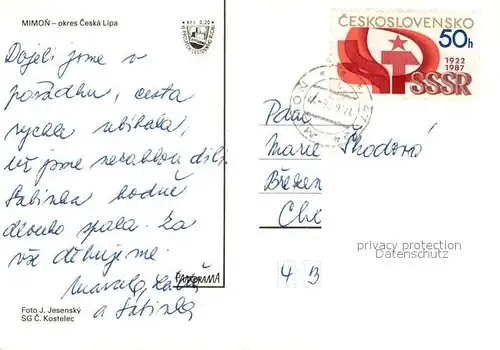 MIMOŇ – okres Česká Lípa
Kčs 0,20
Dojeli jsme v
pořádku, cesta
rychle ubíhala,
už jsme
Sabinka hodně
dlouho spala. Za
vše děkujeme.
a Sabinka
PANORAMA
Foto J. Jesenský
SG Č. Kostelec
ČESKOSLOVENSKO
50h
1922
1987
SSSR
MIMOŇ
Paní
Marie Škodová
Březen
Che
privacy protection
Datenschutz
4 B